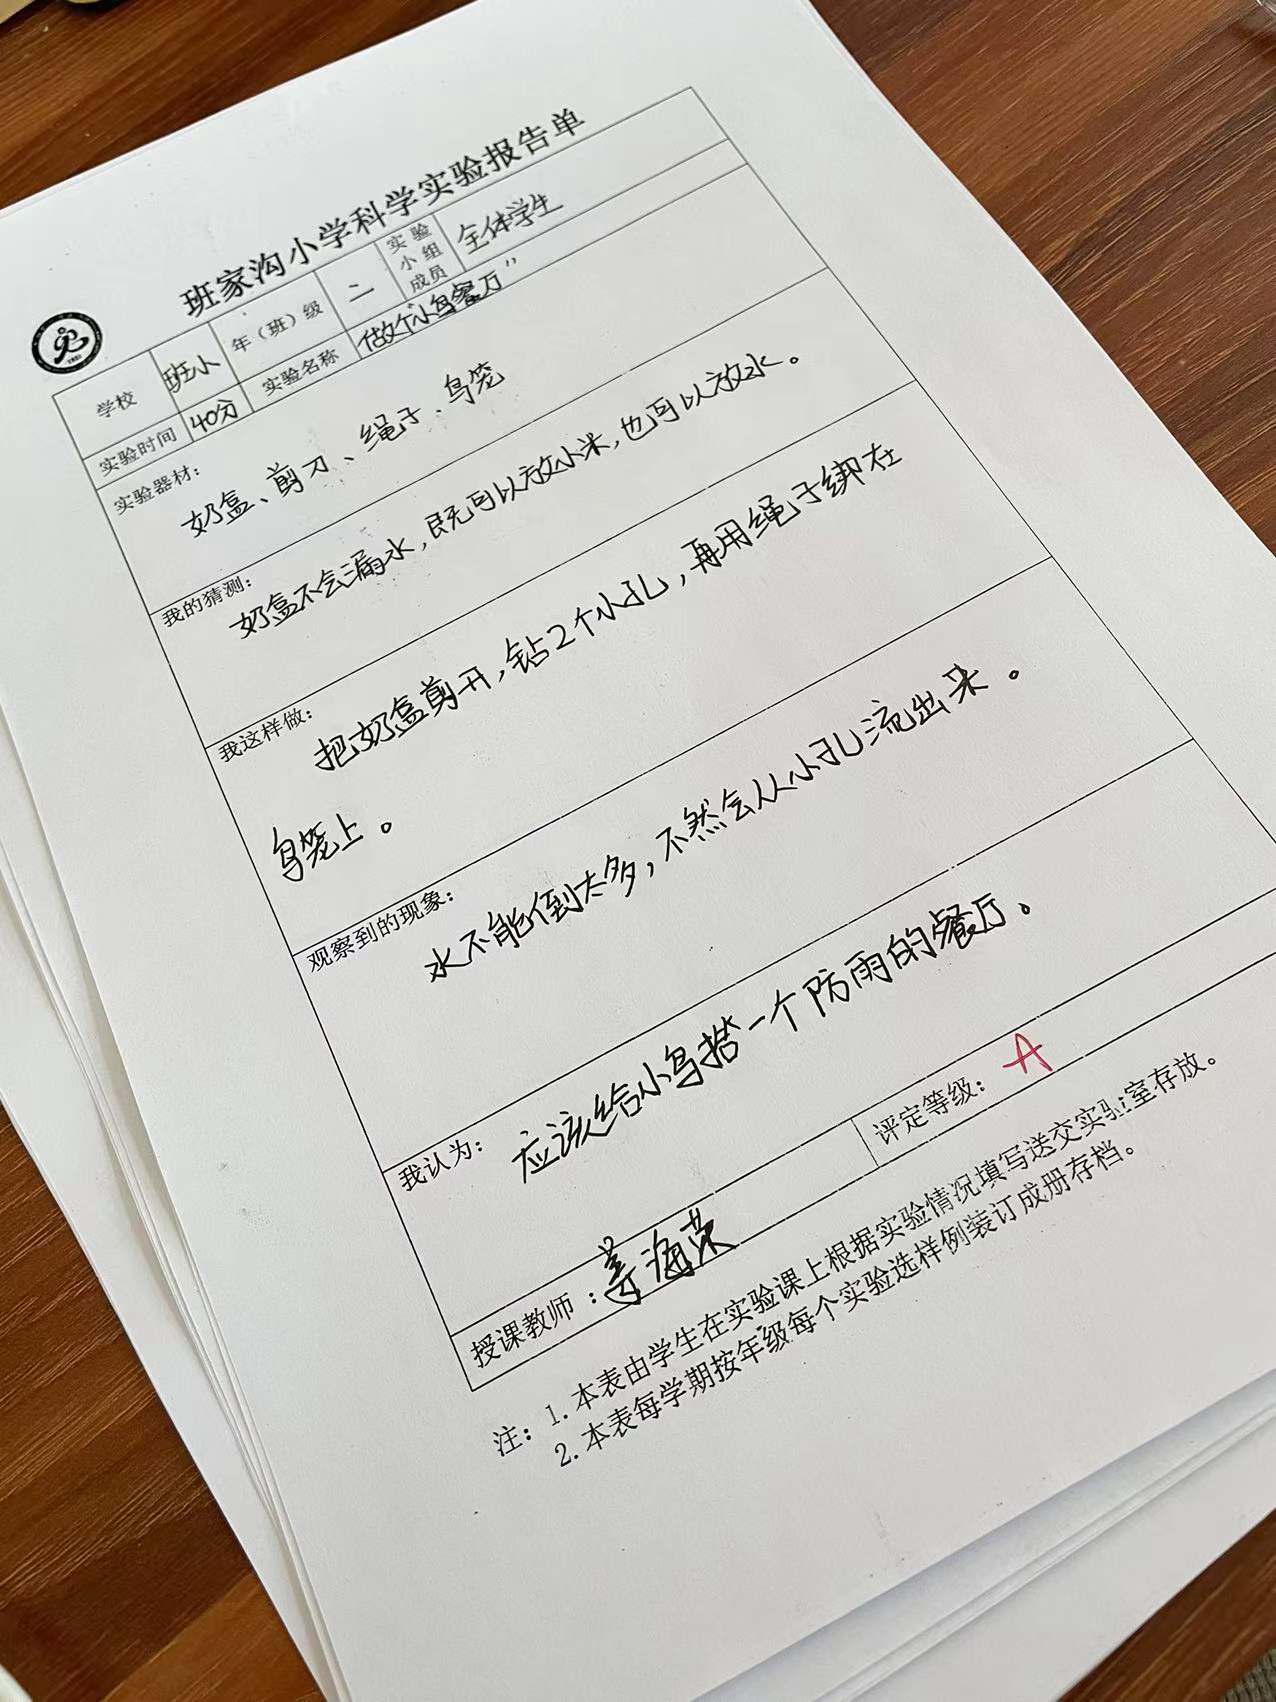 班家沟小学科学实验报告单
学校 班小 年（班）级 二 实验小组成员 全体学生
实验时间 40分 实验名称 “做个小鸟餐厅”
实验器材：
奶盒、剪刀、绳子、鸟笼
我的猜测：
奶盒不会漏水，既可以放小米，也可以放水。
我这样做：
把奶盒剪开，钻2个小孔，再用绳子绑在
鸟笼上。
观察到的现象：
水不能倒太多，不然会从小孔流出来。
我认为：
应该给小鸟搭一个防雨的餐厅。
授课教师：姜海荣 评定等级：A
注：1.本表由学生在实验课上根据实验情况填写送交实验室存放。
2.本表每学期按年级每个实验选样例装订成册存档。